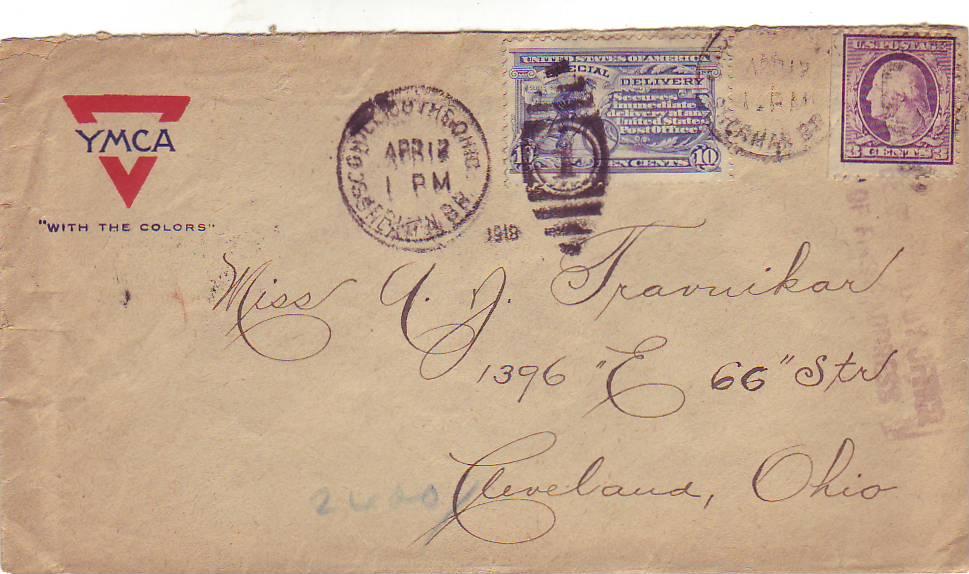 YMCA
"WITH THE COLORS"
CHILLICOTHE, OHIO
APR 12
1 PM
SHERMAN BR.
1918
UNITED STATES OF AMERICA
SPECIAL DELIVERY
Secures
immediate
delivery at any
United States
Post Office
10 TEN CENTS 10
1
APR 12
1 PM
SHERMAN BR.
U.S. POSTAGE
3 CENTS 3
Miss A. J. Travnikar
1396 "E 66" Str
Cleveland, Ohio